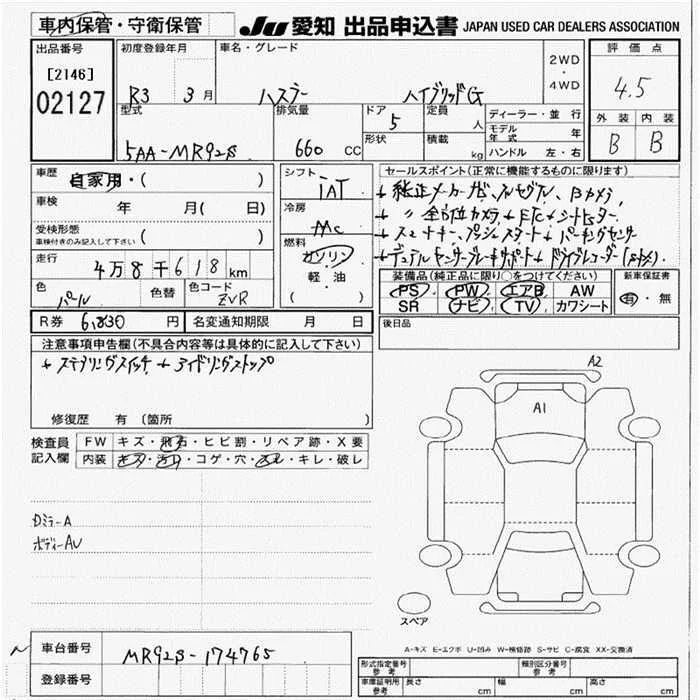 車内保管・守衛保管 JU 愛知 出品申込書 JAPAN USED CAR DEALERS ASSOCIATION
出品番号 初度登録年月 車名・グレード 2WD・4WD 評価点
[2146] R3 3月 ハスラー ハイブリッドG 4.5
02127 型式 排気量 ドア 5 定員 人 ディーラー・並行 外装 内装
モデル年式 年 B B
5AA-MR92S 660 CC 形状 積載 kg ハンドル 左・右
車歴 自家用・( ) シフト IAT セールスポイント(正常に機能するものに限ります)
車検 年 月( 日) 冷房 + 純正メーカーナビ、フルセグTV、Bカメラ、
受検形態 ( ) + 〃 全方位カメラ + ETC + シートヒーター
車検付きのみ記入して下さい 燃料 + スマートキー、プッシュスタート + パーキングセンサー
走行 4万8千618km ガソリン・軽・油 + デュアルセンサーブレーキサポート + ドライブレコーダー
( ) 装備品(純正品に限り○をつけてください) 新車保証書
色 パール 色替 色コード ZVR PS PW エアB AW 有・無
SR ナビ TV カワシート
R券 6,830円 名変通知期限 月 日 後日品
注意事項申告欄(不具合内容等は具体的に記入して下さい)
+ ステアリングスイッチ + アイドリングストップ
A2
A1
修復歴 有 〔箇所 〕
検査員 FW キズ・飛石・ヒビ割・リペア跡・X要
記入欄 内装 キズ・汚れ・コゲ・穴・スレ・キレ・破レ
Dミラー A
ボディー AU
スペア
A-キズ E-エクボ U-凹み W-補修跡 S-サビ C-腐食 XX-交換済
車台番号 MR92S-174765
登録番号
型式指定番号 参考 類別区分番号 参考
車庫証明用 参考 長さ cm 幅 cm 高さ cm